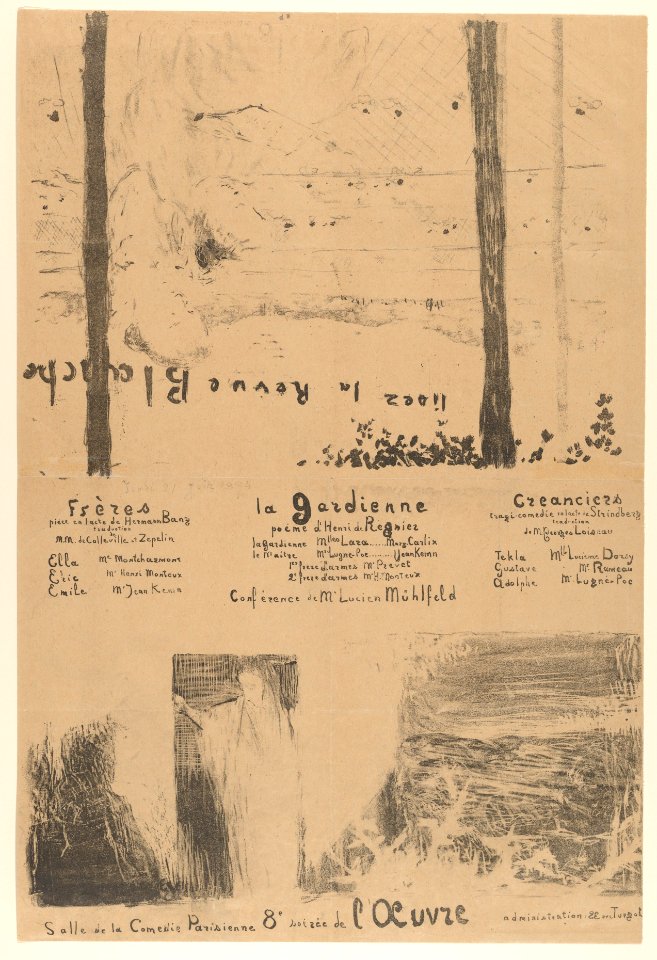 lisez la Revue Blanche
Frères
pièce en 1 acte de Hermann Bang
traduction
M.M. de Colleville et Zepelin
Ella Me Montcharmont
Eric Mr Henri Monteux
Emile Mr Jean Kemm
la gardienne
poème d'Henri de Regnier
la gardienne Mlles Lara......Mary Carlix
le Maitre Mrs Lugné-Poe......Jean Kemm
1er frère d'armes Mr Prevet
2e frère d'armes Mr H. Monteux
Conférence de Mr Lucien Mühlfeld
Creanciers
tragi comedie en 1 acte de Strindberg
traduction
de Mr Georges Loiseau
Tekla Mlle Lucienne Dorsy
Gustave Mr Rameau
Adolphe Mr Lugné-Poe
Salle de la Comedie Parisienne 8e soirée de l'Œuvre
administration: 22 rue Turgot